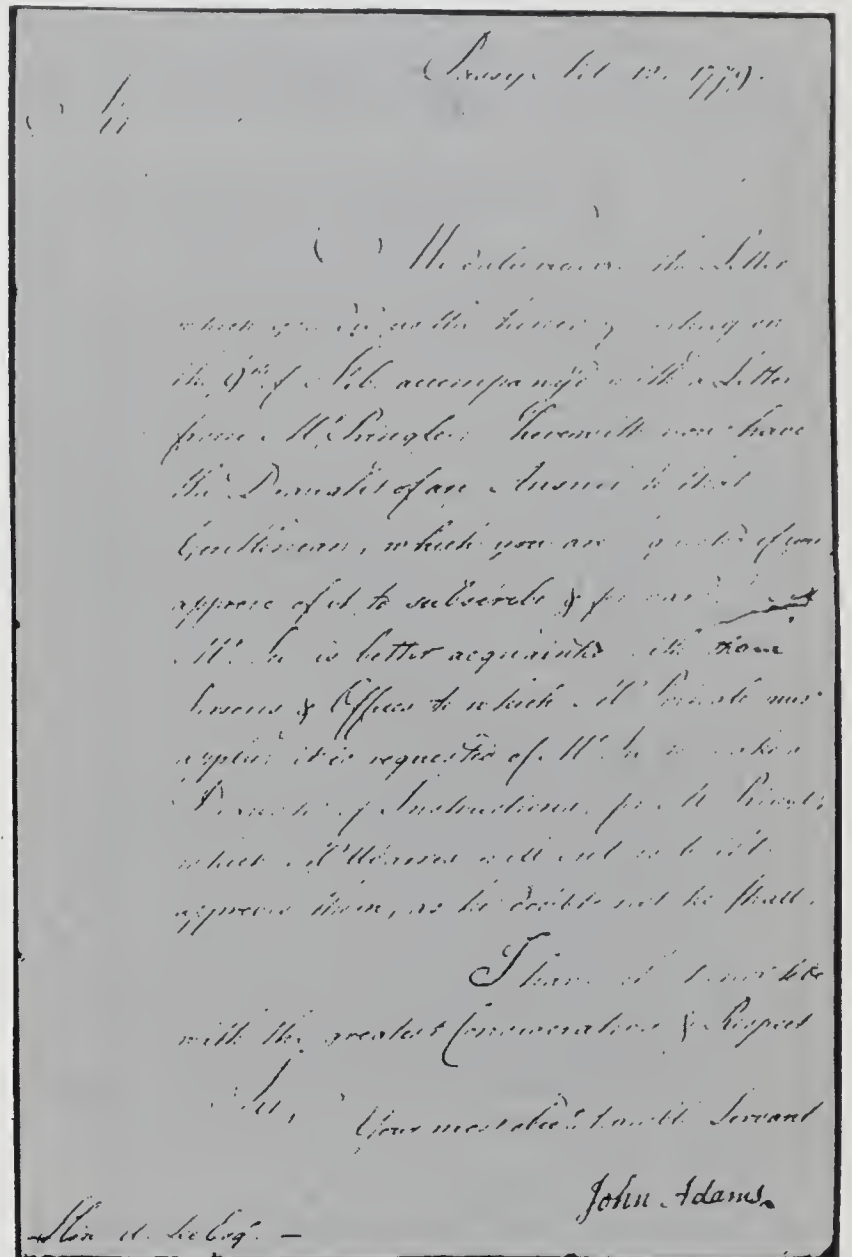 Passy Feb 10. 1779.
Sir
the Letter
which you did us the honour of writing on
the 9th of Feb. accompanyd with a Letter
from Mr. Pringle. Herewith you have
the Draught of an Answer to that
Gentleman, which you are if you
approve of it to subscribe & forward.
Mr. Lee is better acquainted with
& Offices to which Mr. Pringle must
apply it is requested of Mr. Lee to make a
Draught of Instructions for Mr. Pringle,
which Mr. Adams will subscribe if he
approves them, as he doubts not he shall.
I have the honour to be
with the greatest Consideration & Respect
Sir,
Your most obedt. humble Servant
John Adams.
Hon. A. Lee Esqr. —